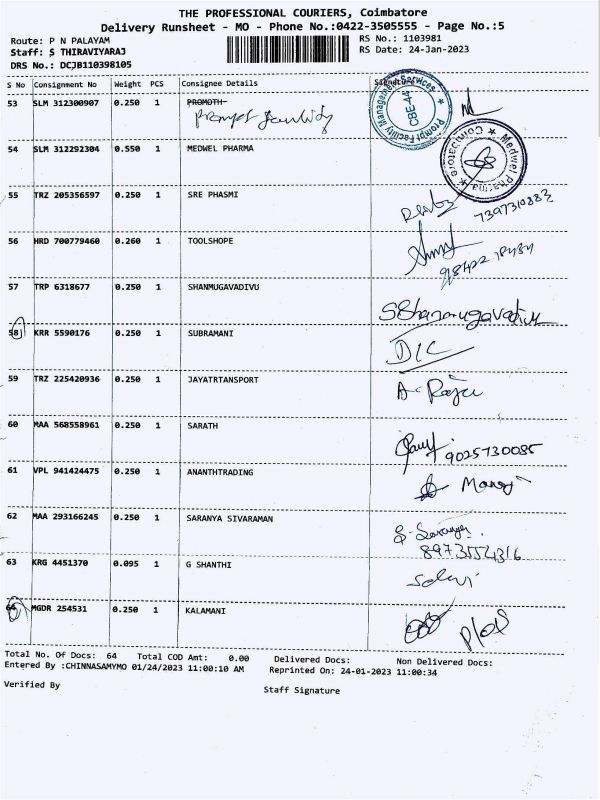 THE PROFESSIONAL COURIERS, Coimbatore
Delivery Runsheet - MO - Phone No.:0422-3505555 - Page No.:5
Route: P N PALAYAM
RS No.: 1103981
Staff: S THIRAVIYARAJ
RS Date: 24-Jan-2023
DRS No.: DCJB110398105
S No Consignment No Weight PCS Consignee Details Signature
53 SLM 312300907 0.250 1 PROMOTH
Prompt Facility
Prompt Facility Management Services
CBE-44
54 SLM 312292304 0.550 1 MEDWEL PHARMA
Medwel Pharma
Coimbatore
55 TRZ 205356597 0.250 1 SRE PHASMI
7397310883
56 HRD 700779460 0.260 1 TOOLSHOPE
57 TRP 6318677 0.250 1 SHANMUGAVADIVU
SShanmugavadivu
58 KRR 5590176 0.250 1 SUBRAMANI
59 TRZ 225420936 0.250 1 JAYATRTANSPORT
A- Raju
60 MAA 568558961 0.250 1 SARATH
9025730085
61 VPL 941424475 0.250 1 ANANTHTRADING
Manoj
62 MAA 293166245 0.250 1 SARANYA SIVARAMAN
S. Saranya
63 KRG 4451370 0.095 1 G SHANTHI
Selvi
64 MGDR 254531 0.250 1 KALAMANI
Total No. Of Docs: 64 Total COD Amt: 0.00 Delivered Docs: Non Delivered Docs:
Entered By :CHINNASAMYMO 01/24/2023 11:00:10 AM Reprinted On: 24-01-2023 11:00:34
Verified By
Staff Signature